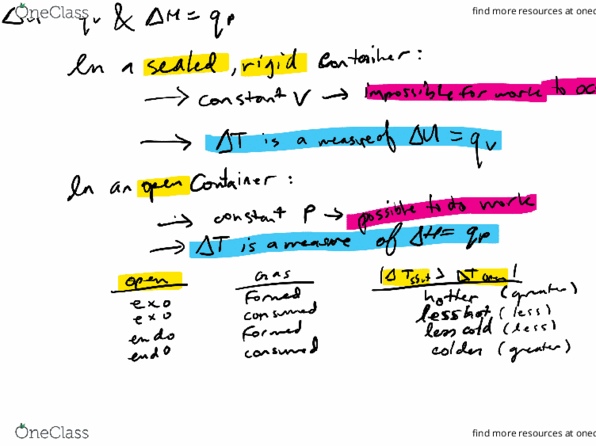 OneClass
find more resources at oned
ΔU = qv & ΔH = qp
In a sealed, rigid container:
→ constant V → impossible for work to oc
→ ΔT is a measure of ΔU = qv
In an open Container:
→ constant P → possible to do work
→ ΔT is a measure of ΔH = qp
open gas |ΔT > ΔT |
exo formed hotter (greater)
exo consumed less hot (less)
endo formed less cold (less)
endo consumed colder (greater)
OneClass
find more resources at oned